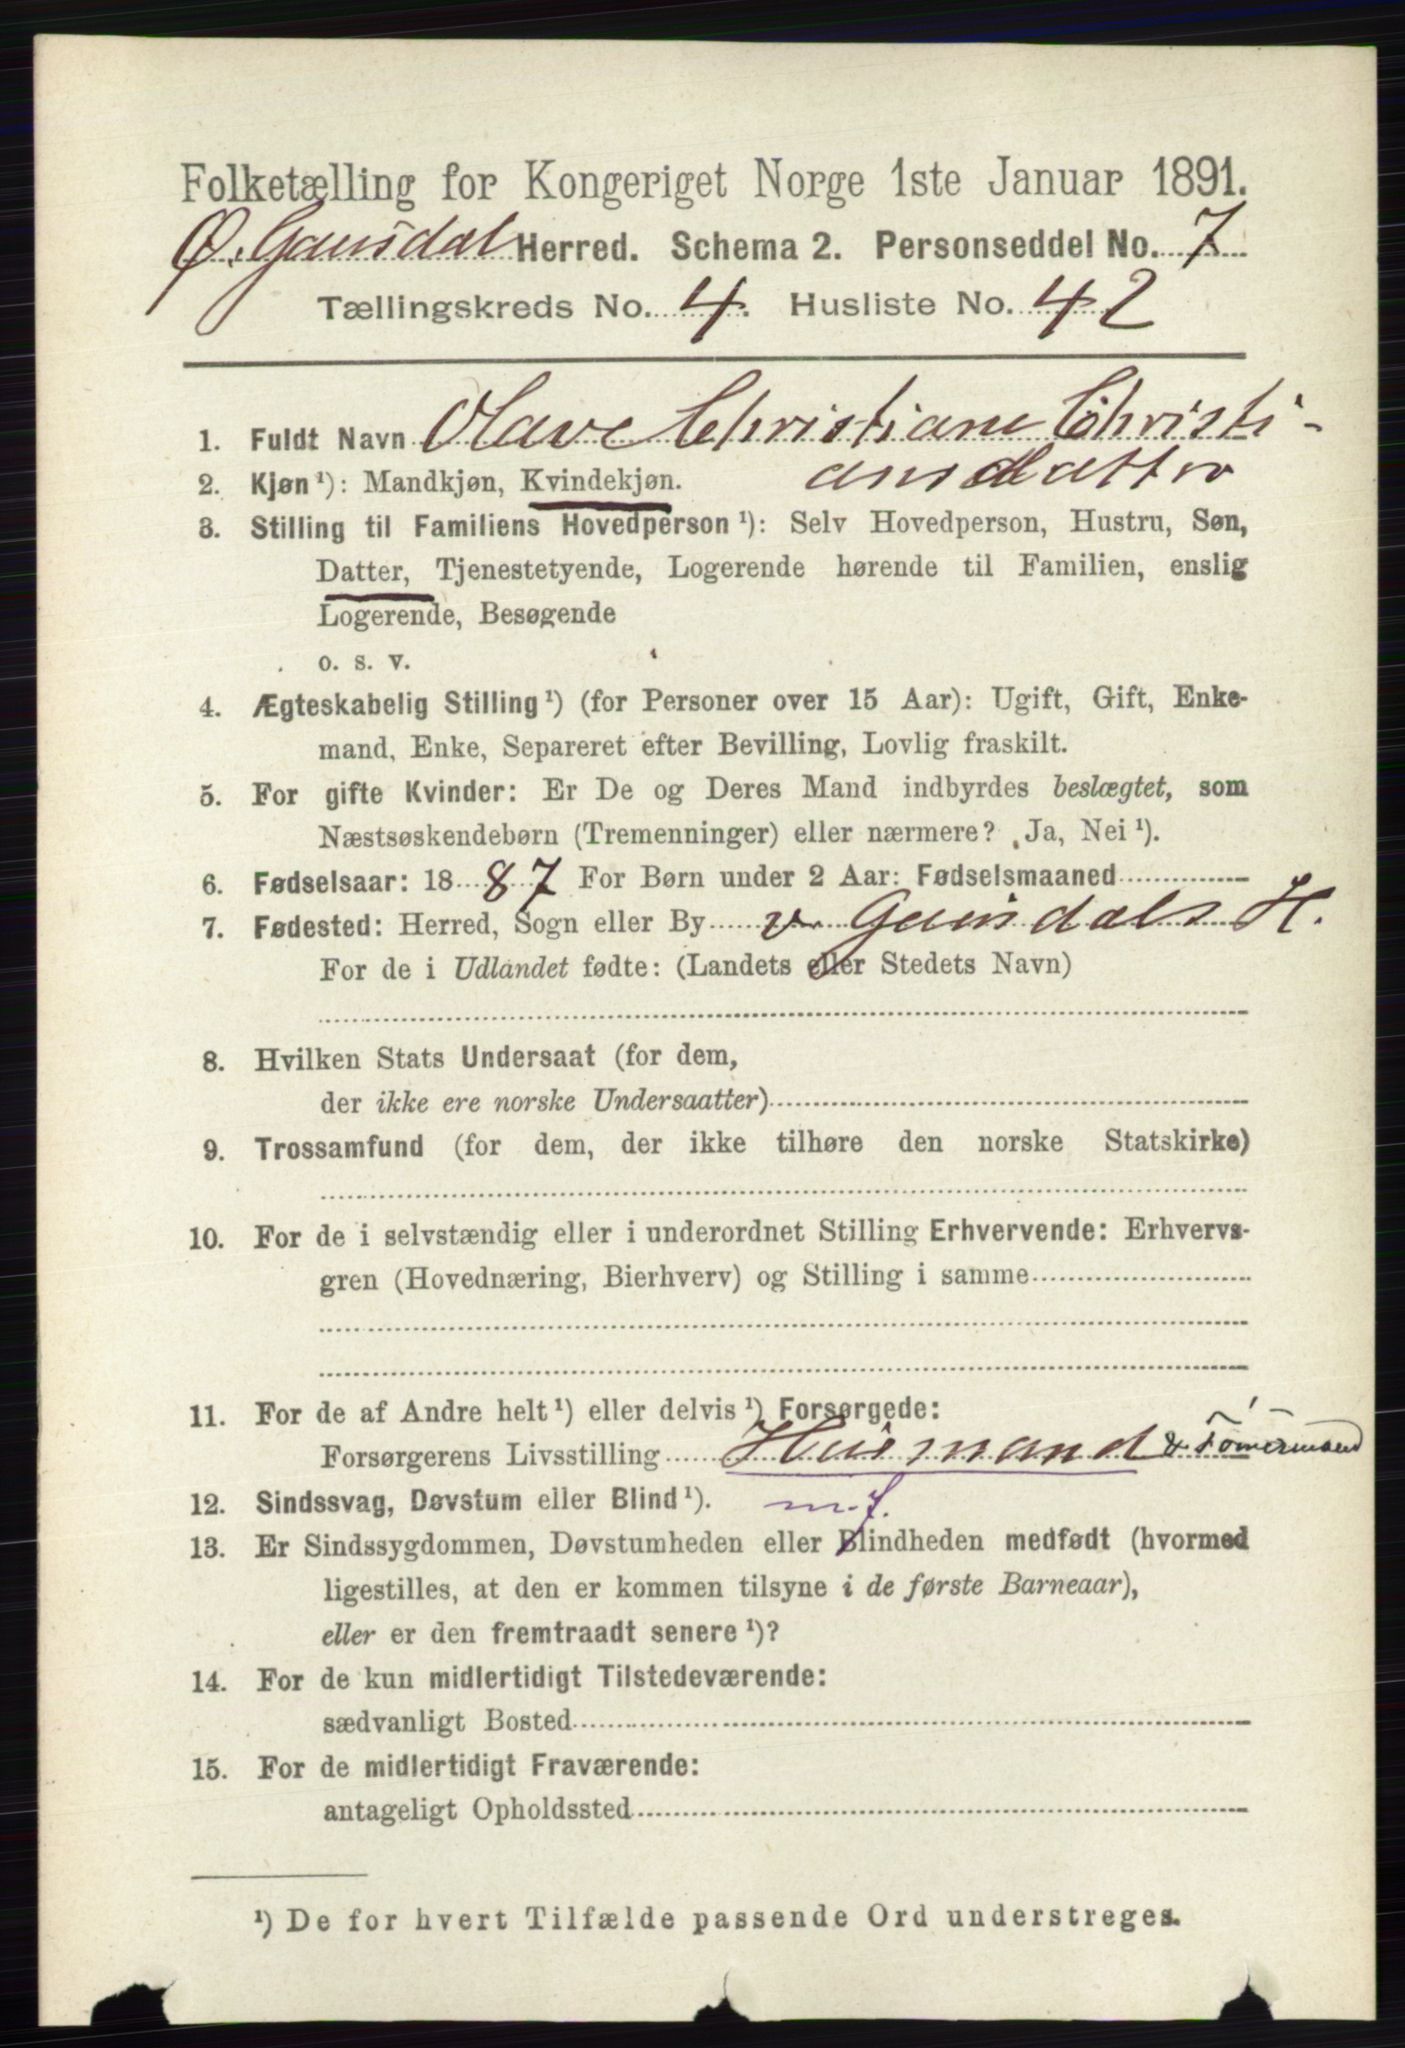 Folketælling for Kongeriget Norge 1ste Januar 1891.
Ø. Gausdal Herred. Schema 2. Personseddel No. 7
Tællingskreds No. 4. Husliste No. 42
1. Fuldt Navn Olave Christiane Christi-
ansdatter
2. Kjøn ¹): Mandkjøn, Kvindekjøn.
3. Stilling til Familiens Hovedperson ¹): Selv Hovedperson, Hustru, Søn,
Datter, Tjenestetyende, Logerende hørende til Familien, enslig
Logerende, Besøgende
o. s. v.
4. Ægteskabelig Stilling ¹) (for Personer over 15 Aar): Ugift, Gift, Enke-
mand, Enke, Separeret efter Bevilling, Lovlig fraskilt.
5. For gifte Kvinder: Er De og Deres Mand indbyrdes beslægtet, som
Næstsøskendebørn (Tremenninger) eller nærmere? Ja, Nei ¹).
6. Fødselsaar: 1887 For Børn under 2 Aar: Fødselsmaaned
7. Fødested: Herred, Sogn eller By v Gausdals H.
For de i Udlandet fødte: (Landets eller Stedets Navn)
8. Hvilken Stats Undersaat (for dem,
der ikke ere norske Undersaatter)
9. Trossamfund (for dem, der ikke tilhøre den norske Statskirke)
10. For de i selvstændig eller i underordnet Stilling Erhvervende: Erhvervs-
gren (Hovednæring, Bierhverv) og Stilling i samme
11. For de af Andre helt ¹) eller delvis ¹) Forsørgede:
Forsørgerens Livsstilling Husmand & Tømermand
12. Sindssvag, Døvstum eller Blind ¹). m.f.
13. Er Sindssygdommen, Døvstumheden eller Blindheden medfødt (hvormed
ligestilles, at den er kommen tilsyne i de første Barneaar),
eller er den fremtraadt senere ¹)?
14. For de kun midlertidigt Tilstedeværende:
sædvanligt Bosted
15. For de midlertidigt Fraværende:
antageligt Opholdssted
¹) De for hvert Tilfælde passende Ord understreges.